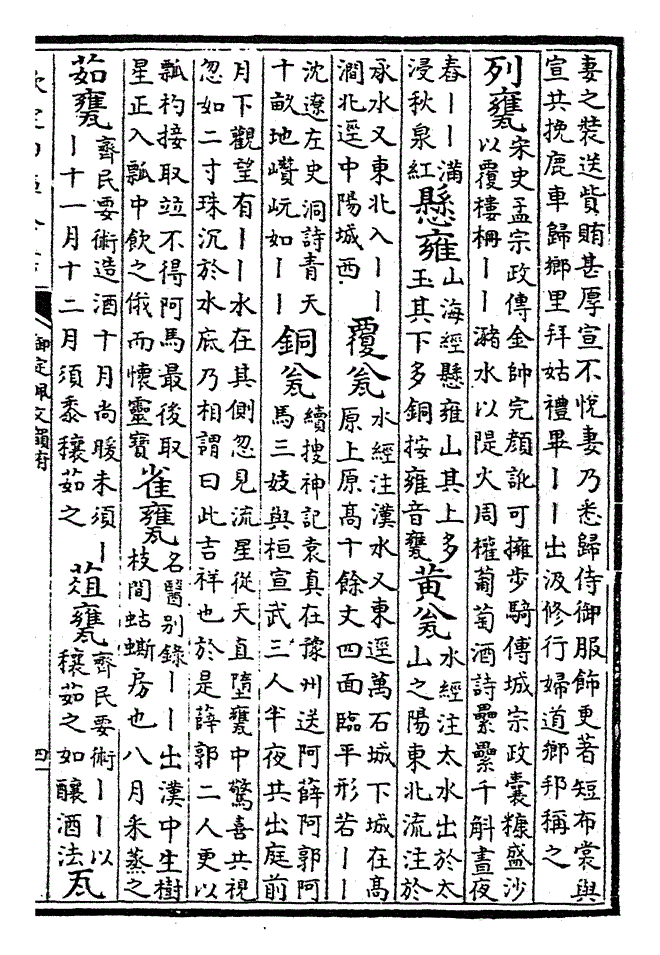 妻之裝送貲賄甚厚宣不悅妻乃悉歸侍御服飾更著短布裳與
宣共挽鹿車歸鄉里拜姑禮畢丨丨出汲修行婦道鄉邦稱之
列甕
宋史孟宗政傳金帥完顏訛可擁步騎傅城宗政囊糠盛沙
以覆樓柵丨丨瀦水以隄火周權葡萄酒詩纍纍千斛晝夜
舂丨丨滿
浸秋泉紅
懸雍
山海經懸雍山其上多
玉其下多銅按雍音甕
黄瓮
水經注太水出於太
山之陽東北流注於
承水又東北入丨丨
澗北逕中陽城西
覆瓮
水經注漢水又東逕萬石城下城在高
原上原高十餘丈四面臨平形若丨丨
沈遼左史洞詩青天
十畝地巑岏如丨丨
銅瓮
續搜神記袁真在豫州送阿薛阿郭阿
馬三妓與桓宣武三人半夜共出庭前
月下觀望有丨丨水在其側忽見流星從天直墮甕中驚喜共視
忽如二寸珠沉於水底乃相謂曰此吉祥也於是薛郭二人更以
瓢杓接取竝不得阿馬最後取
星正入瓢中飲之俄而懷靈寶
雀甕
名醫别錄丨丨出漢中生樹
枝間蛅蟖房也八月采蒸之
茹甕
齊民要術造酒十月尚暖未須丨
丨十一月十二月須黍穰茹之
葅甕
齊民要術丨丨以
穰茹之如釀酒法
瓦
御定佩文韻府
四